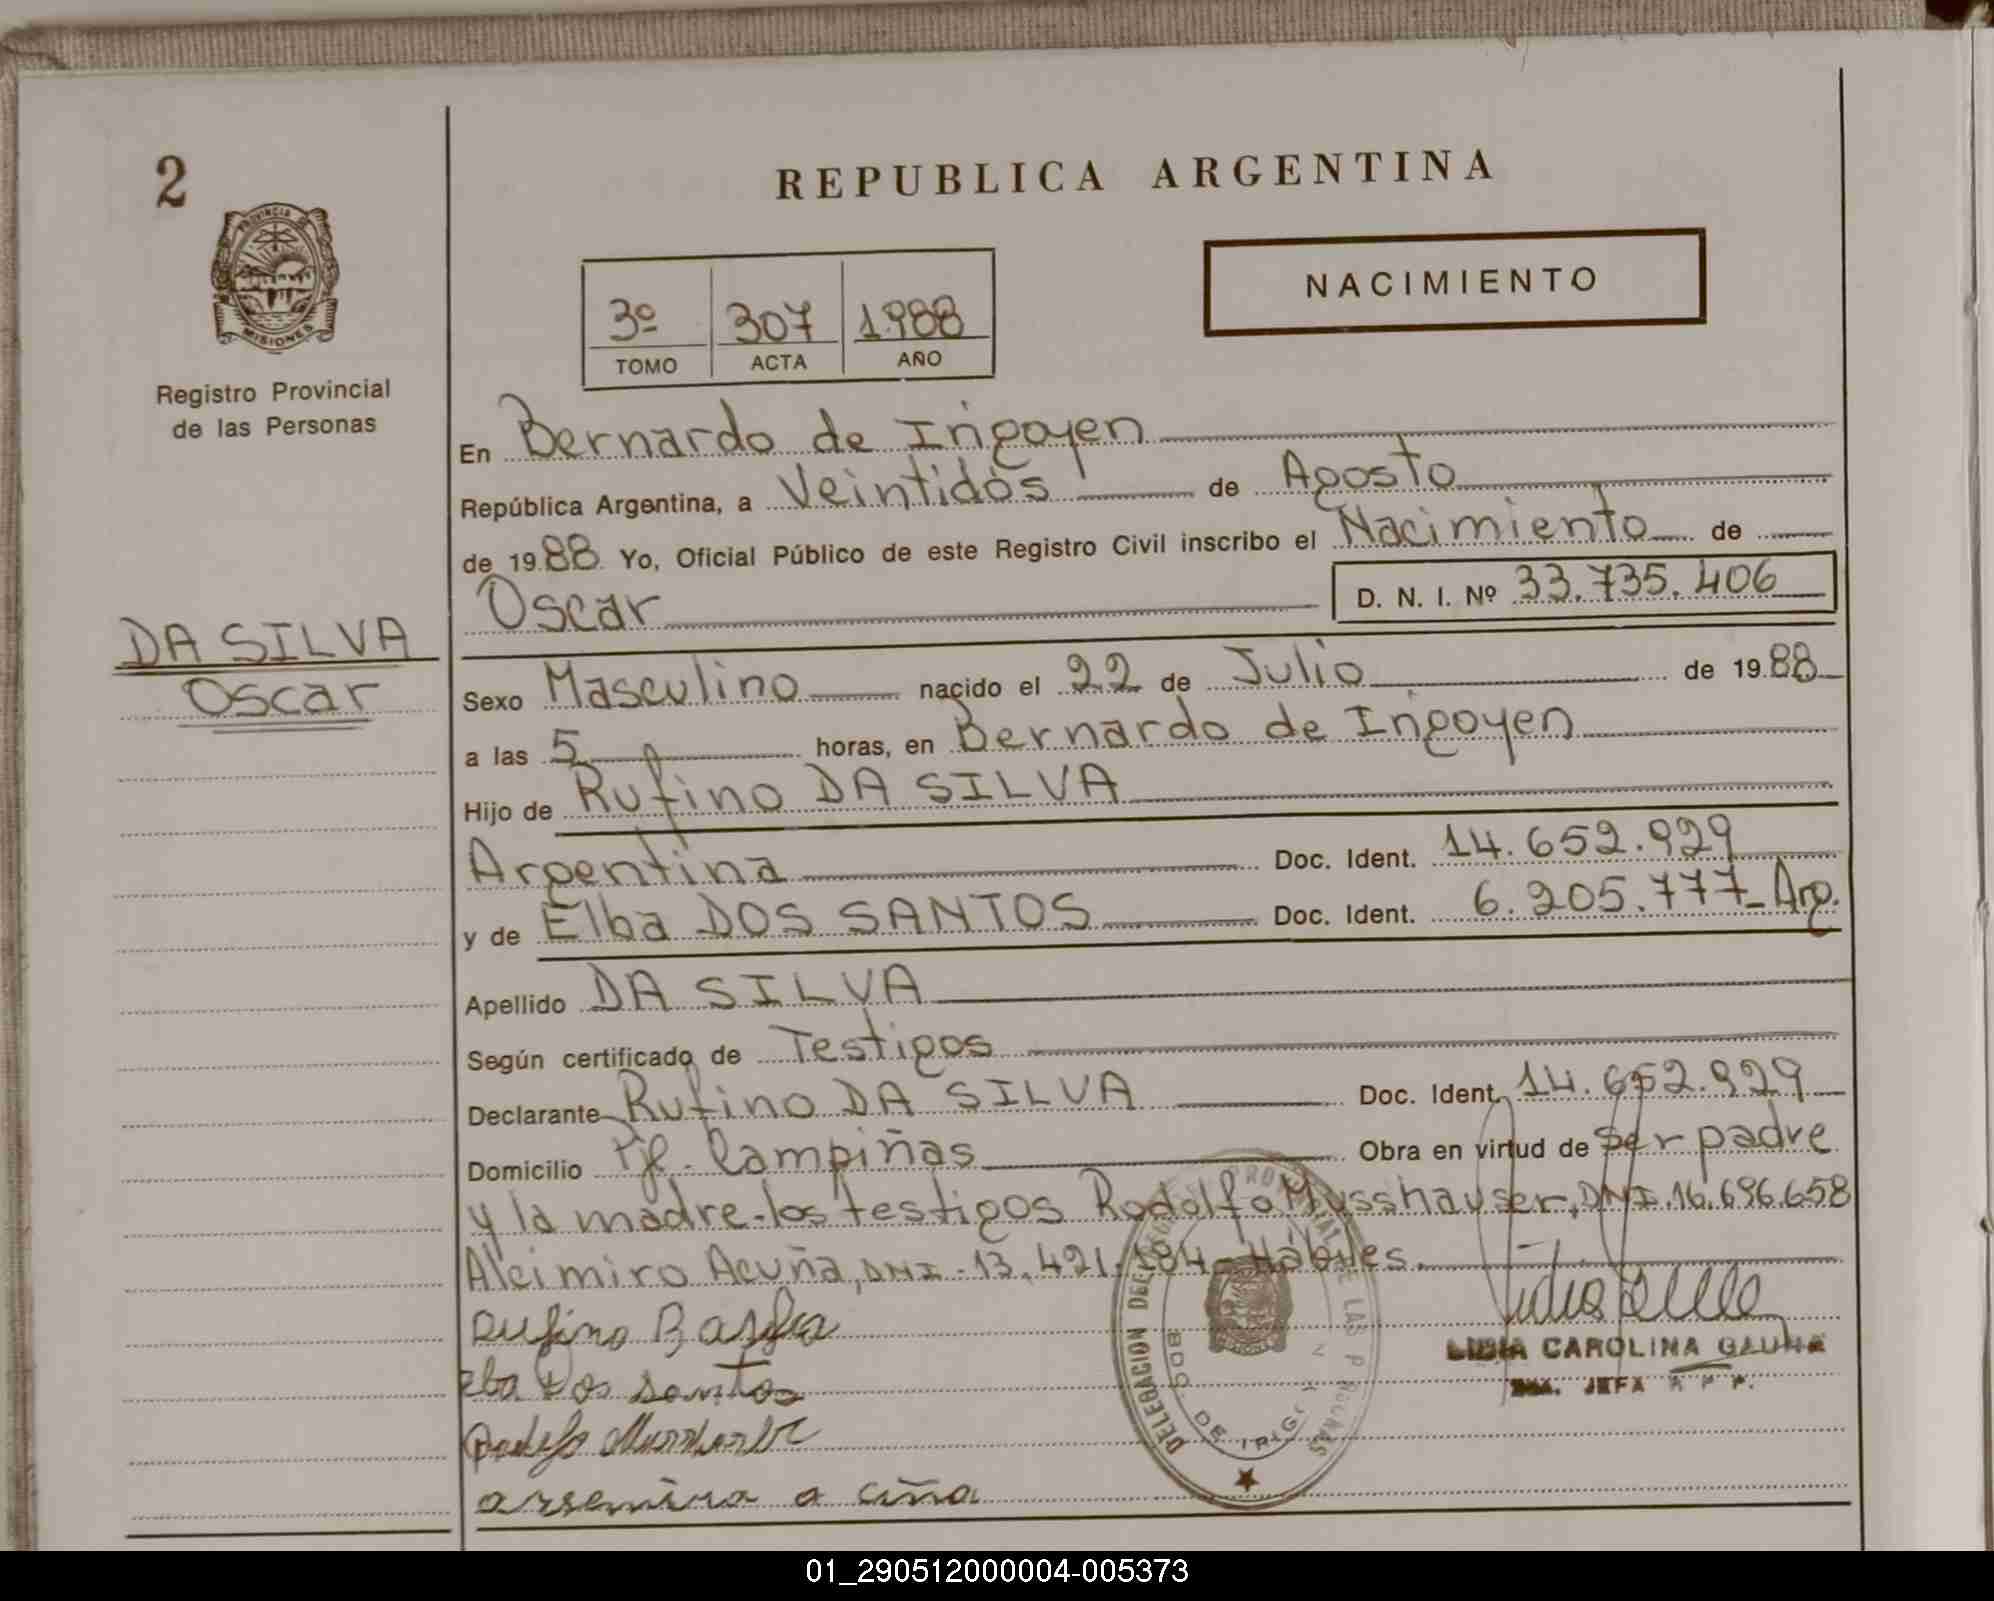 2
PROVINCIA DE
MISIONES
Registro Provincial
de las Personas
DA SILVA
Oscar
REPUBLICA ARGENTINA
NACIMIENTO
3º 307 1.988
TOMO ACTA AÑO
En Bernardo de Irigoyen
República Argentina, a Veintidós de Agosto
de 1988 Yo, Oficial Público de este Registro Civil inscribo el Nacimiento de
Oscar D. N. I. Nº 33.735.406
Sexo Masculino nacido el 22 de Julio de 1988
a las 5 horas, en Bernardo de Irigoyen
Hijo de Rufino DA SILVA
Argentina Doc. Ident. 14.652.929
y de Elba DOS SANTOS Doc. Ident. 6.205.777- Arg.
Apellido DA SILVA
Según certificado de Testigos
Declarante Rufino DA SILVA Doc. Ident. 14.652.929
Domicilio Pje. Campiñas Obra en virtud de ser padre
y la madre-los testigos Rodolfo Musshauser, DNI.16.696.658
Alcimiro Acuña, DNI-13.421.184- Hábiles.
Rufino Dasilva
Elba Dos Santos
LIDIA CAROLINA GAUNA
JEFA R P P.
DELEGACION DEL REGISTRO PROVINCIAL DE LAS PERSONAS
BDO. DE IRIGOYEN
01_290512000004-005373